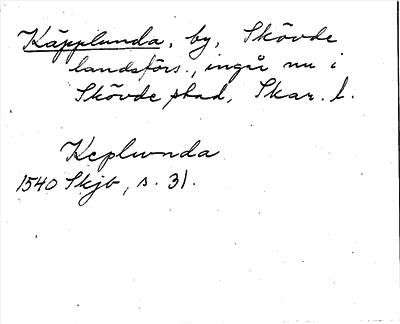 Käpplunda, by, Skövde
landsförs., ingår nu i
Skövde stad, Skar. l.
Keplwnda
1540 Skjb, s. 31.